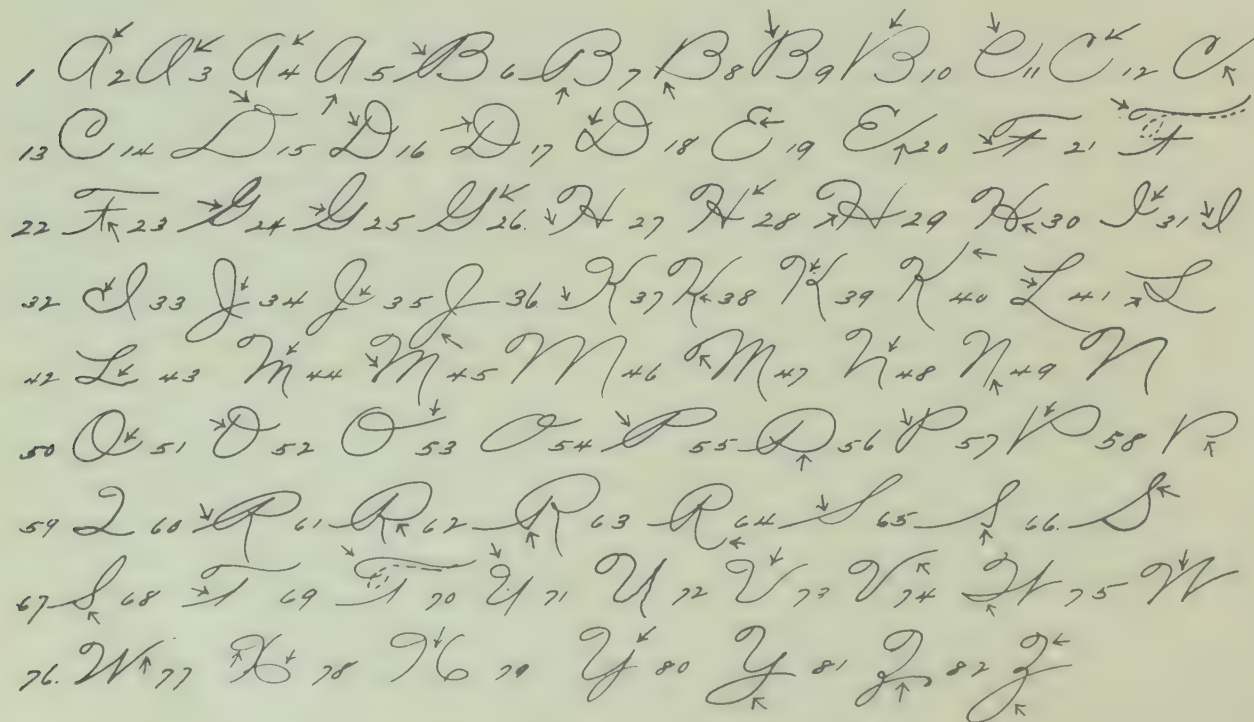 1 A 2 A 3 A 4 A 5 B 6 B 7 B 8 B 9 B 10 C 11 C 12 C
13 C 14 D 15 D 16 D 17 D 18 E 19 E 20 F 21 F
22 F 23 G 24 G 25 G 26. H 27 H 28 H 29 H 30 I 31 I
32 I 33 J 34 J 35 J 36 K 37 K 38 K 39 K 40 L 41 L
42 L 43 M 44 M 45 M 46 M 47 N 48 N 49 N
50 O 51 O 52 O 53 O 54 P 55 P 56 P 57 P 58 P
59 Q 60 R 61 R 62 R 63 R 64 S 65 S 66. S
67 S 68 T 69 T 70 U 71 U 72 V 73 V 74 W 75 W
76. W 77 X 78 X 79 Y 80 Y 81 Z 82 Z